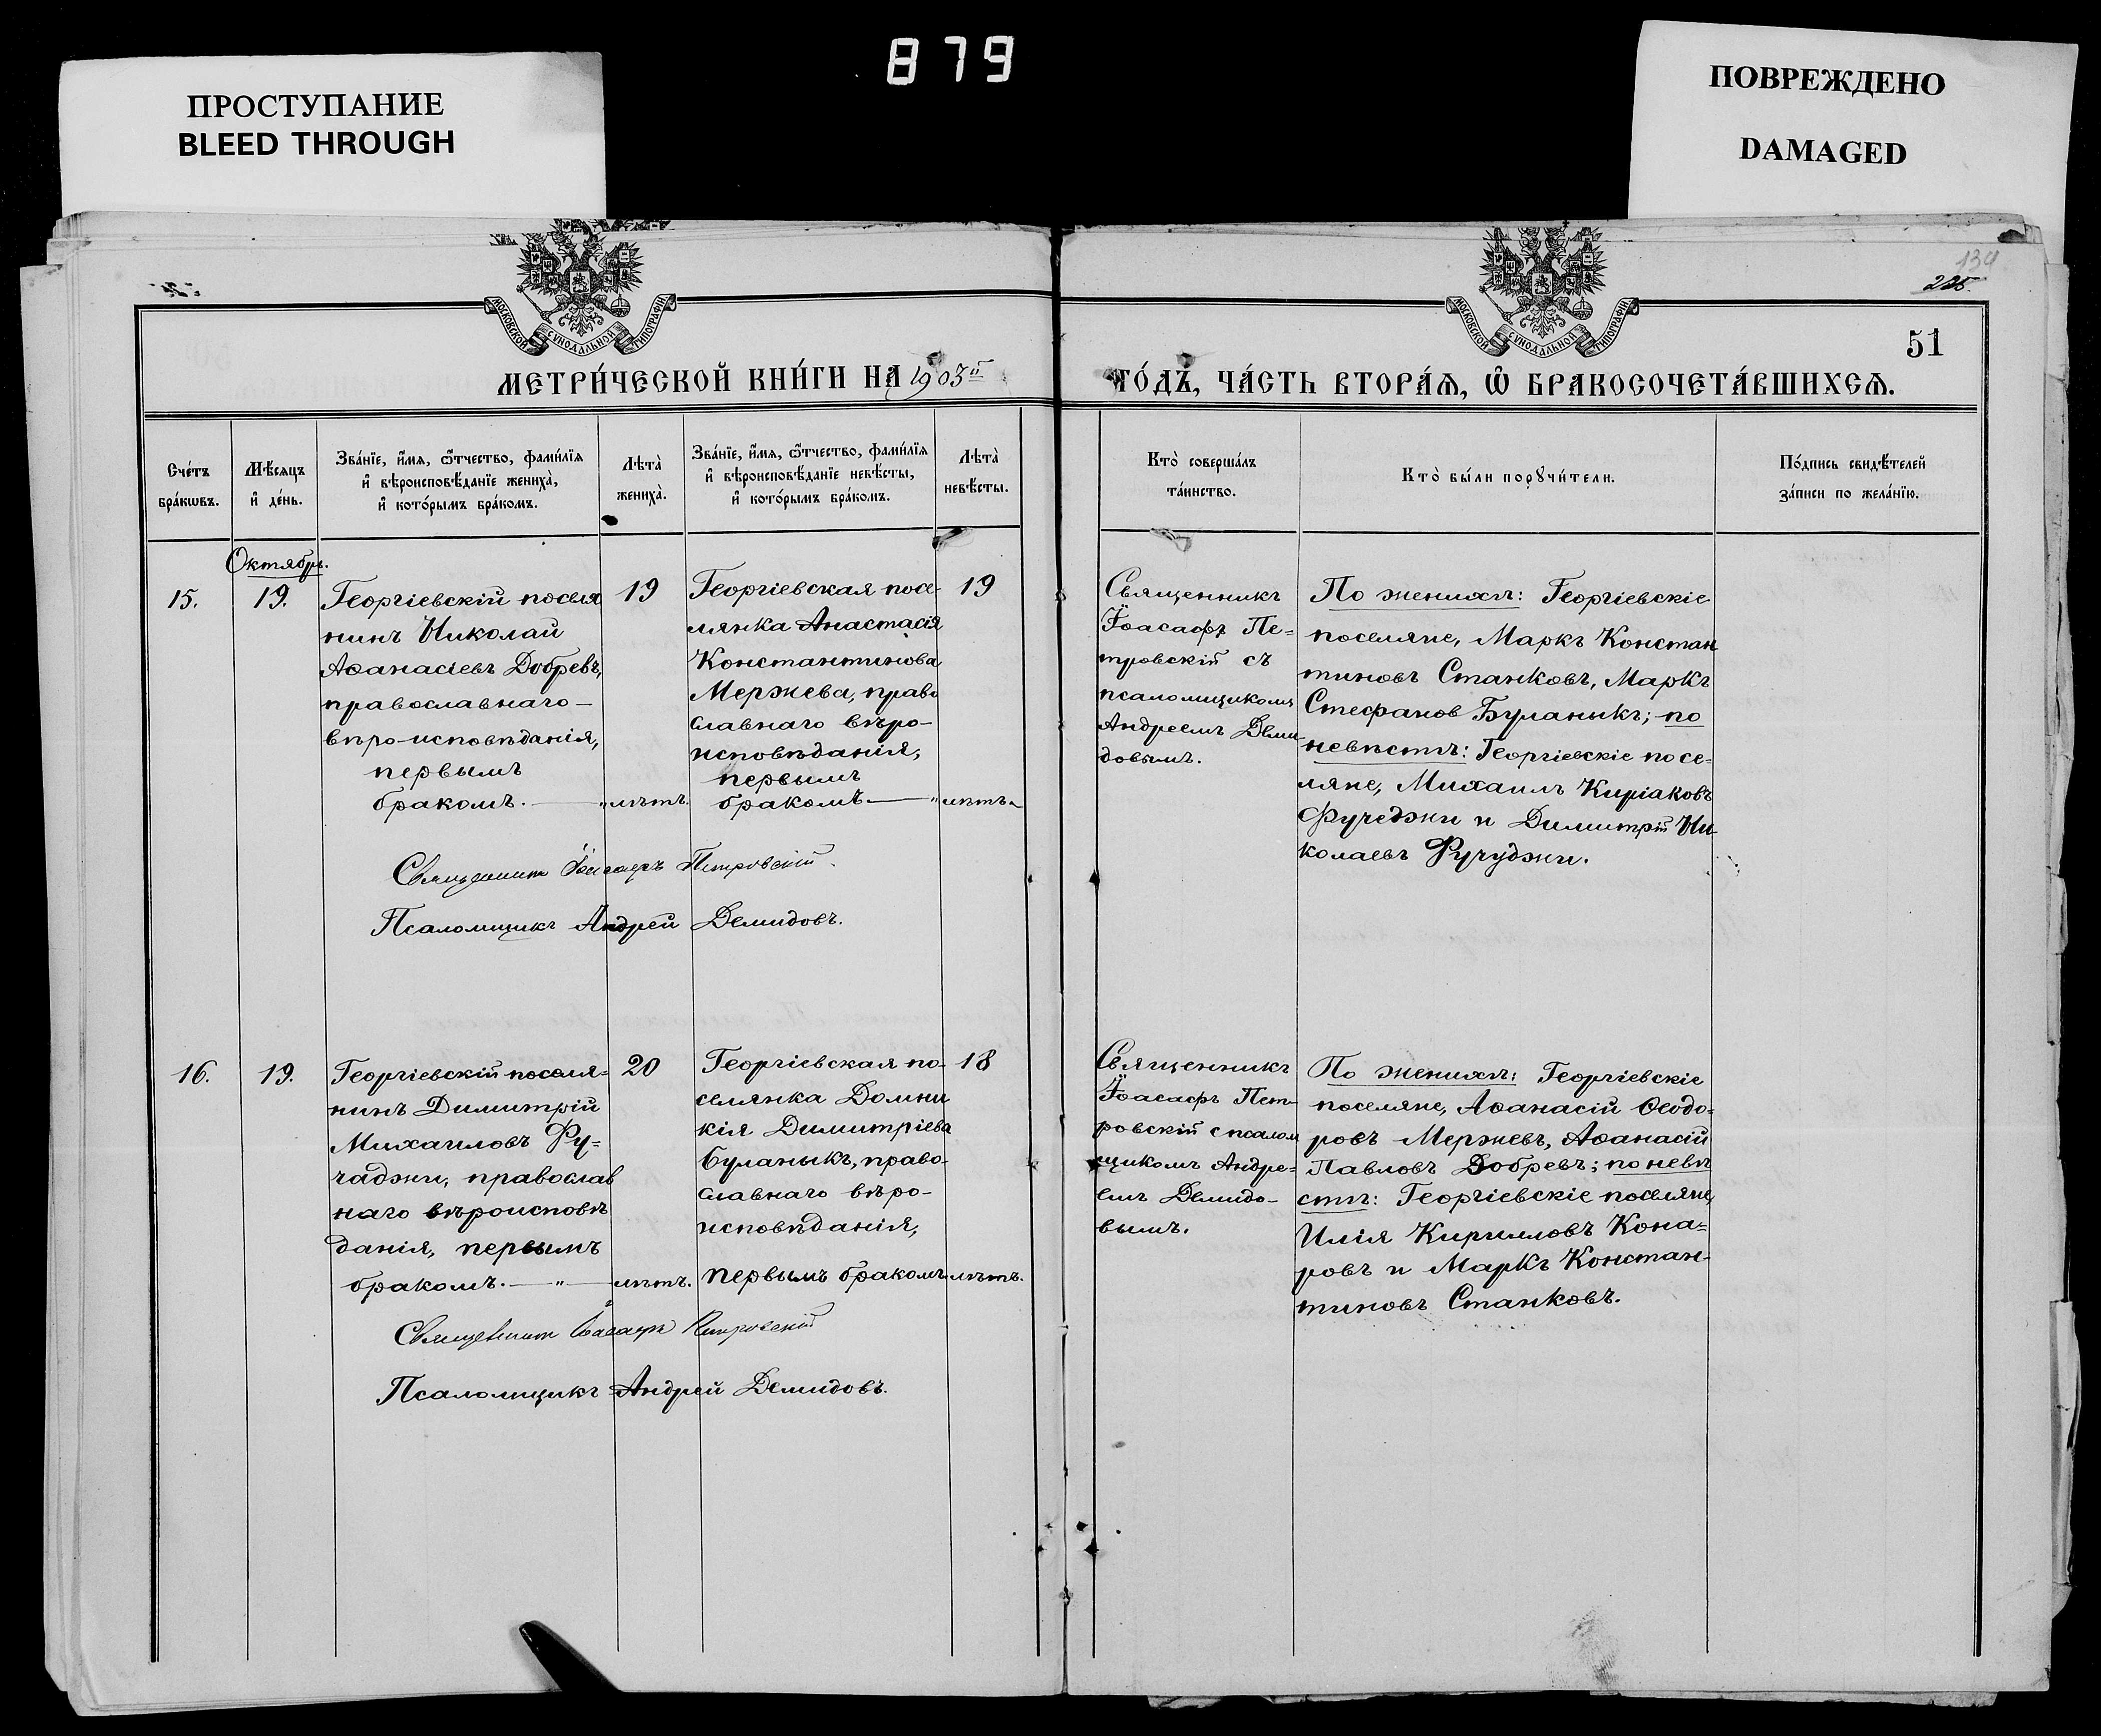 879
ПРОСТУПАНИЕ
BLEED THROUGH
ПОВРЕЖДЕНО
DAMAGED
МОСКОВСКОЙ СѴНОДАЛЬНОЙ ТИПОГРАФІИ
МОСКОВСКОЙ СѴНОДАЛЬНОЙ ТИПОГРАФІИ
134
225.
51
МЕТРИ́ЧЕСКОЙ КНИ́ГИ НА 1903й ГО́ДЪ, ЧА́СТЬ ВТОРА́Ѧ, Ѡ҆ БРАКОСОЧЕТА́ВШИХСѦ.
Сче́тъ
бра́кѡвъ.
Мѣ́сяцъ
и҆ де́нь.
Зва́нїе, и҆́мя, ѻ҆́тчество, фами́лїя
и҆ вѣроисповѣ́данїе жениха̀,
и҆ кото́рымъ бра́комъ.
Лѣта̀
жениха̀.
Зва́нїе, и҆́мя, ѻ҆́тчество, фами́лїя
и҆ вѣроисповѣ́данїе невѣ́сты,
и҆ кото́рымъ бра́комъ.
Лѣта̀
невѣ́сты.
Кто̀ соверша́лъ
та́инство.
Кто̀ бы́ли порꙋчи́тели.
По́дпись свидѣ́телей
за́писи по жела́нїю.
Октябрь.
15.
19.
Георгіевскій поселя
нинъ Николай
Аѳанасіевъ Добревъ,
православнаго —
вѣро-исповѣданія,
первымъ
бракомъ. — „
19
лѣтъ.
Георгіевская посе-
лянка Анастасія
Константинова
Мержева, право
славнаго вѣро-
исповѣданія,
первымъ
бракомъ — „
19
лѣтъ
Священникъ
Іоасафъ Пе=
тровскій съ
псаломщикомъ
Андреемъ Деми-
довымъ.
По женихѣ: Георгіевскіе
поселяне, Маркъ Констан
тиновъ Станковъ, Маркъ
Стефанов Буланыкъ; по
невѣстѣ: Георгіевскіе посе-
ляне, Михаилъ Киріаковъ
Фучеджи и Димитрій Ни-
колаевъ Ручуджи.
Священникъ Іоасафъ Петровскій.
Псаломщикъ Андрей Демидовъ.
16.
19.
Георгіевскій поселя=
нинъ Димитрій
Михаиловъ Ру=
чаджи, православ
наго вѣроисповѣ
данія, первымъ
бракомъ. — „ —
20
лѣтъ.
Георгіевская по-
селянка Домни
кія Димитріева
Буланыкъ, право-
славнаго вѣро-
исповѣданія,
первымъ бракомъ
18
лѣтъ.
Священникъ
Іоасафъ Пет-
ровскій с псалом
щикомъ Андре=
емъ Демидо-
вымъ.
По женихѣ: Георгіевскіе
поселяне, Аѳанасій Ѳеодо=
ровъ Мержевъ, Аѳанасій
Павловъ Добревъ; по невѣ
стѣ: Георгіевскіе поселяне,
Илія Кирилловъ Кона=
ровъ и Маркъ Констан-
тиновъ Станковъ.
Священникъ Іоасафъ Петровскій
Псаломщикъ Андрей Демидовъ.